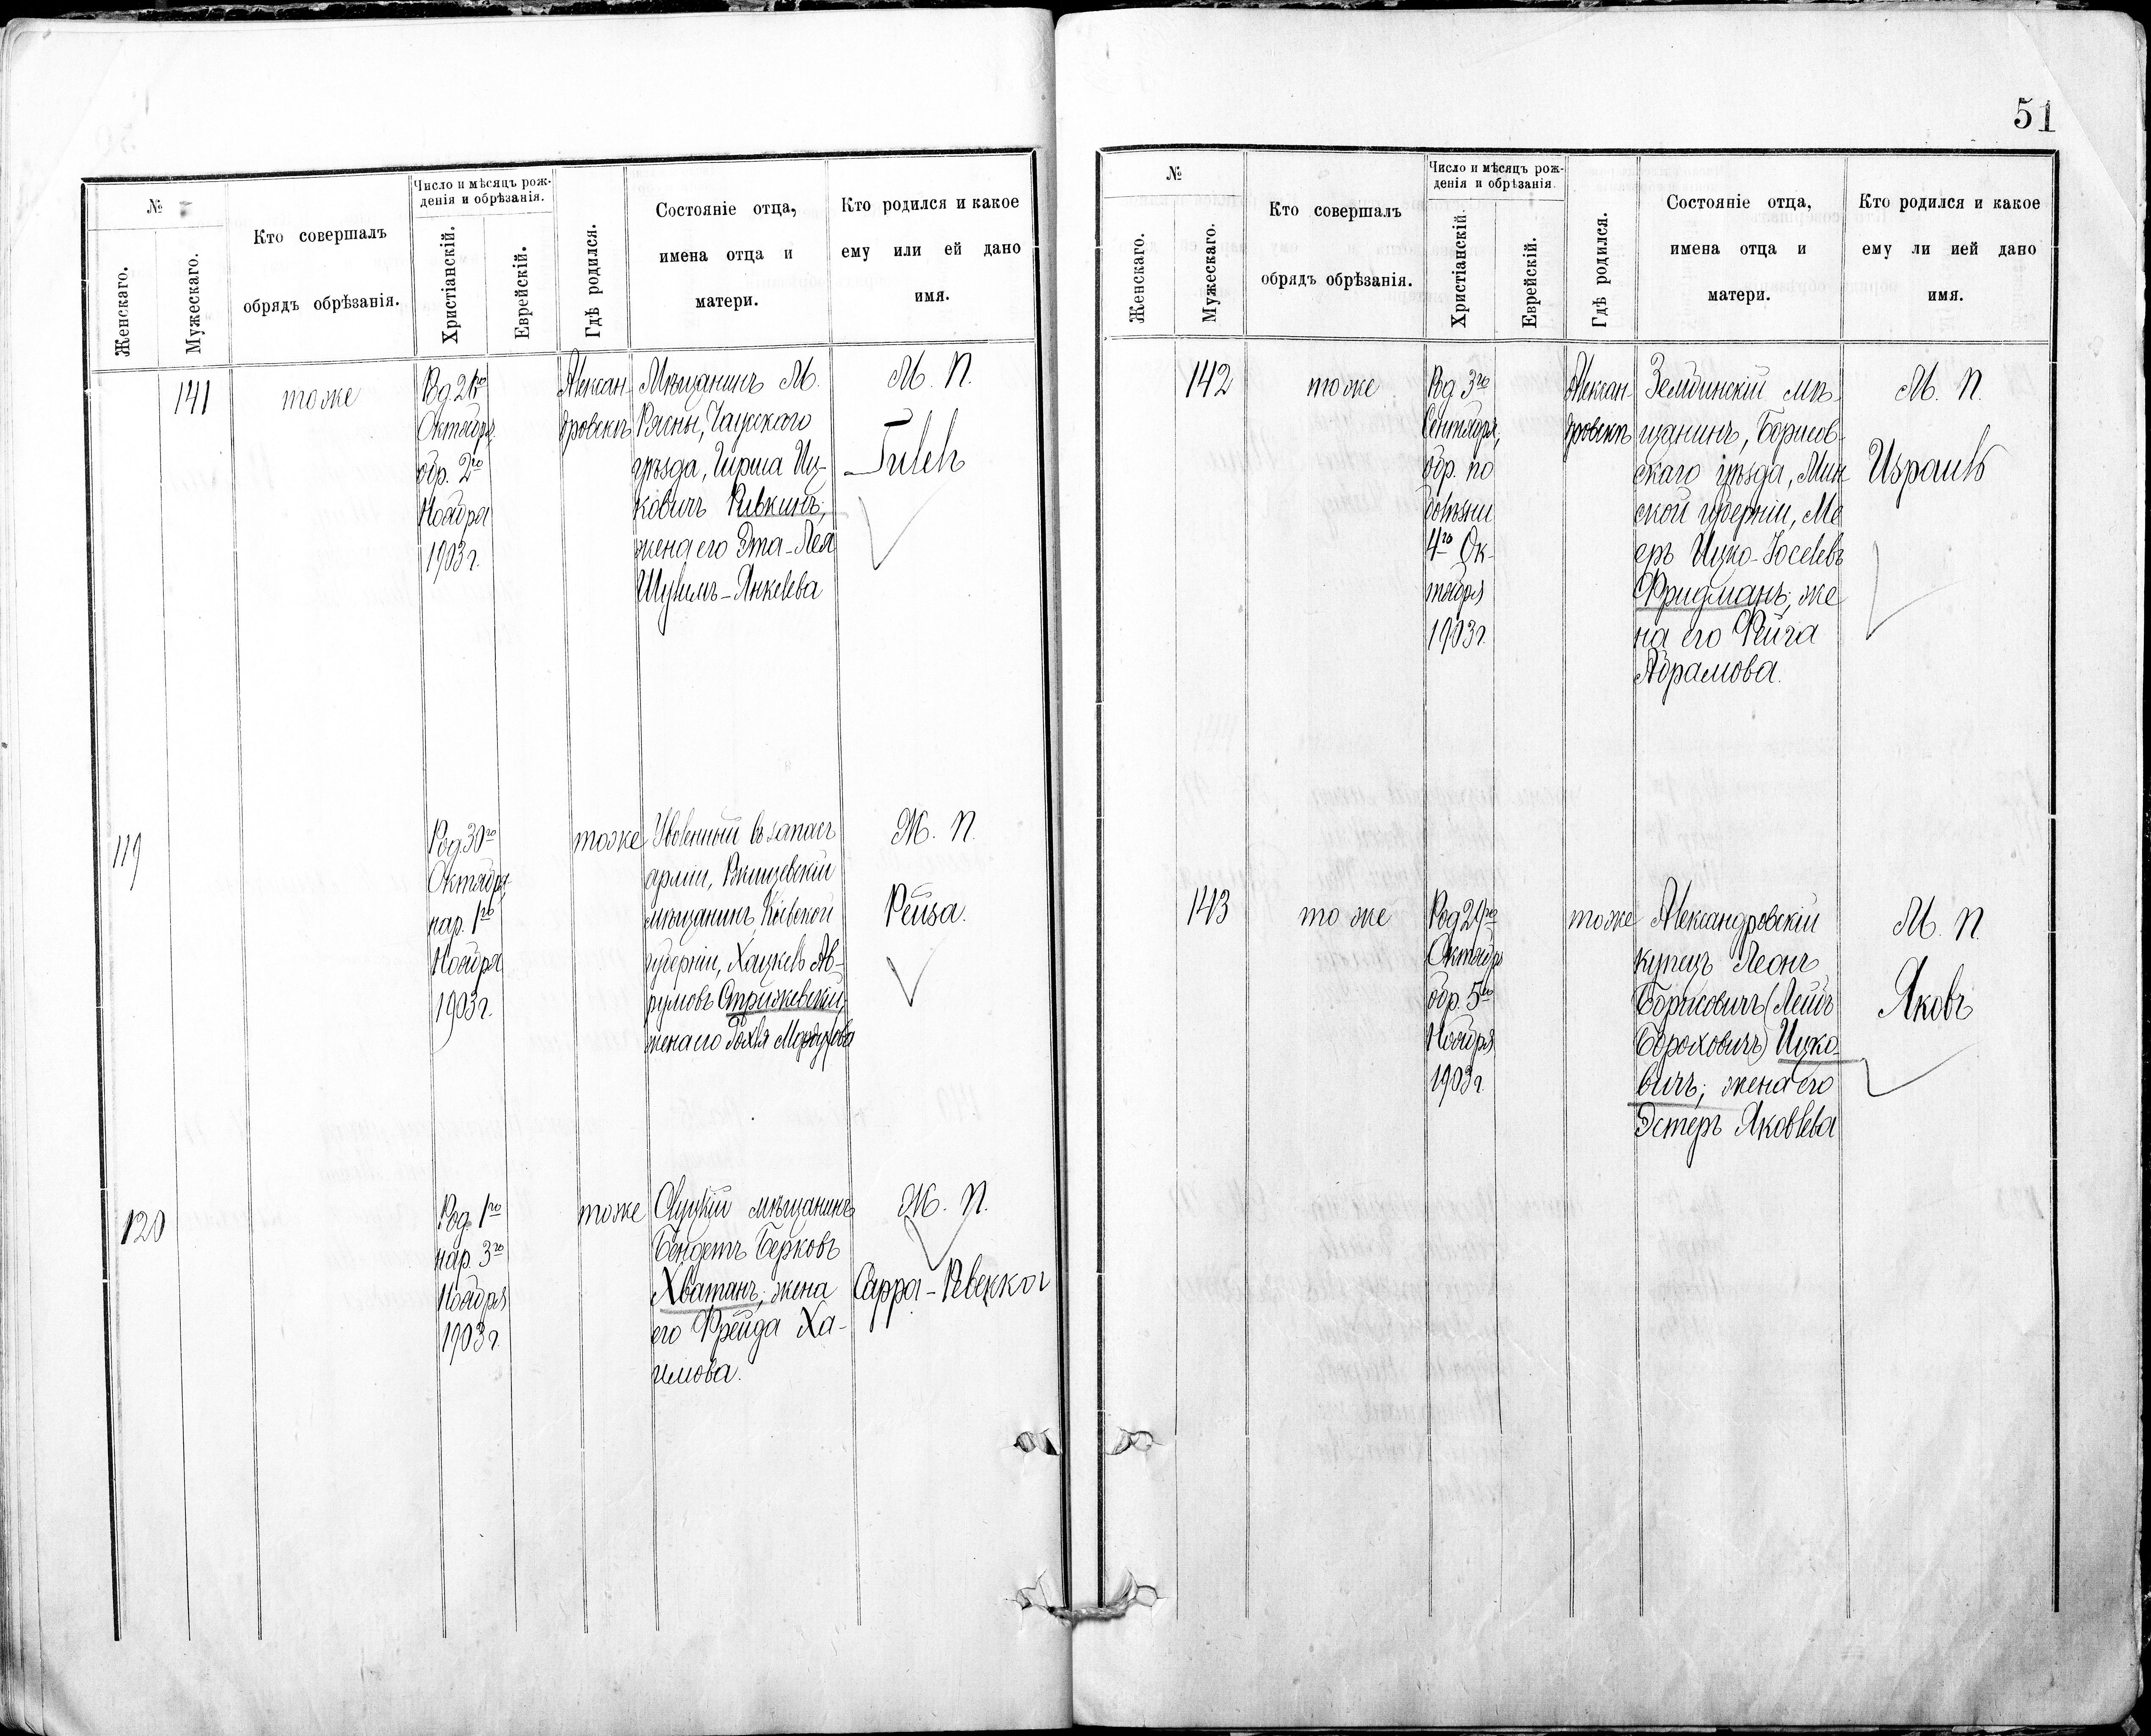 №
Женскаго.
Мужескаго.
Кто совершалъ
обрядъ обрѣзанія.
Число и мѣсяцъ рож-
денія и обрѣзанія.
Христіанскій.
Еврейскій.
Гдѣ родился.
Состояніе отца,
имена отца и
матери.
Кто родился и какое
ему или ей дано
имя.
141
тоже
Род.
Октября,
обр. 2го
Ноября
1903 г.
Алексан-
дровскъ
Мѣщанинъ М.
Рясны, Чаусскаго
уѣзда, Гирша Иц-
ковичъ Ривкинъ;
жена его Эта-Лея
Янкелева
М. П.
119
Род 30го
Октября,
нар. 1го
Ноября
1903 г.
тоже
Уволенный въ запасъ
арміи, Ржищевскій
мѣщанинъ, Кіевской
губерніи, Хацкель Ав-
румовъ Стрижевскій,
жена его Мордухова
Ж. П.
Рейза.
120
Род. 1го
нар. 3го
Ноября
1903 г.
тоже
Слуцкій мѣщанинъ
Бендетъ Берковъ
Хватанъ; жена
его Фрейда Ха-
имова.
Ж. П.
Сарра-Ревекка
51
№
Женскаго.
Мужескаго.
Кто совершалъ
обрядъ обрѣзанія.
Число и мѣсяцъ рож-
денія и обрѣзанія.
Христіанскій.
Еврейскій.
Гдѣ родился.
Состояніе отца,
имена отца и
матери.
Кто родился и какое
ему ли ией дано
имя.
142
тоже
Род. 3го
Сентября,
обр. по
болѣзни
4го Ок-
тября
1903 г.
Алексан-
дровскъ
Зембинскій мѣ-
щанинъ, Борисов-
скаго уѣзда, Мин-
ской губерніи, Ме
еръ Ицко-Іоселевъ
Фридманъ; же
на его Фейга
Абрамова.
М. П.
Израиль
143
то же
Род 29го
Октября
обр. 5го
Ноября
1903 г.
тоже
Александровскій
купецъ Леонъ
Борисовичъ (Лейбъ
Бороховичъ) Ицко-
вичъ; жена его
Эстеръ Яковлева
М. П.
Яковъ